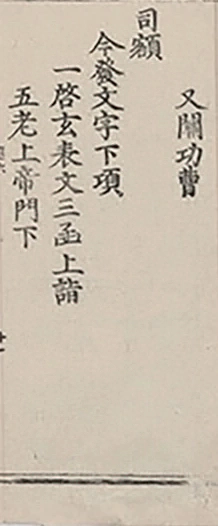 又關功曹
司額
今發文字下項
一啓玄表文三函上請
五老上帝門下